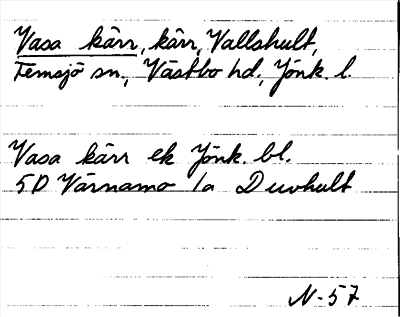 Vasa kärr, kärr, Vallshult,
Femsjö sn., Västbo hd., Jönk. l.
Vasa kärr ek Jönk. bl.
5D Värnamo 1a Duvhult
N-57